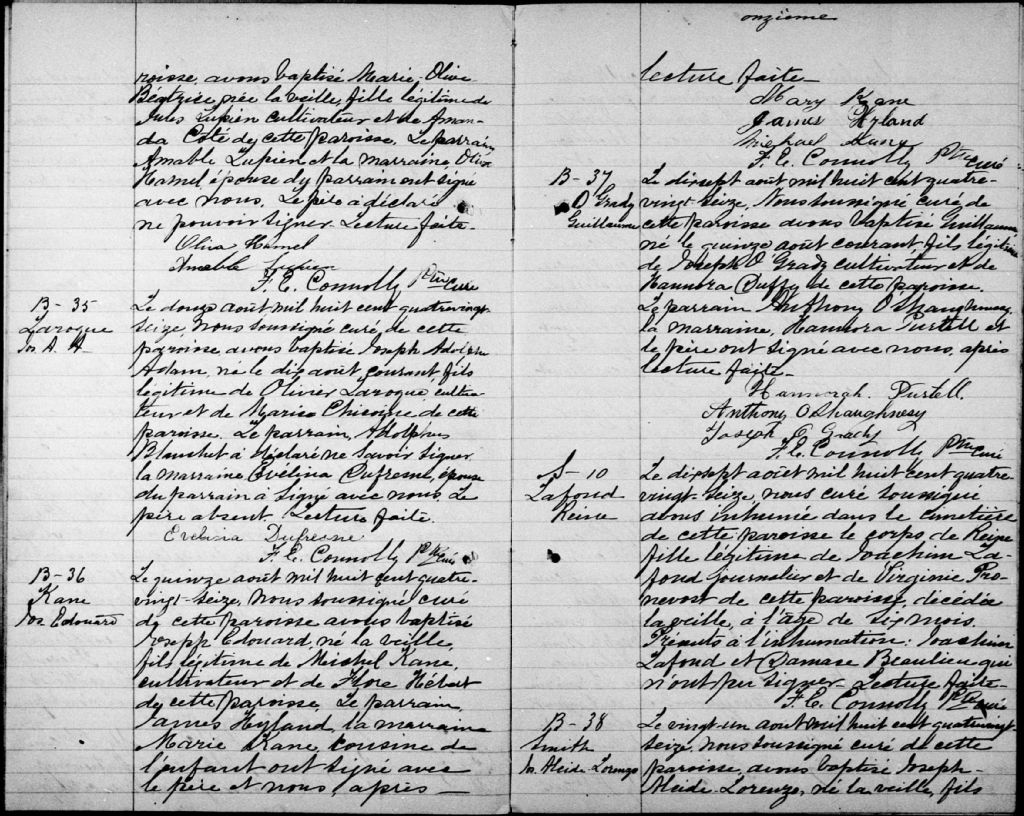 roisse, avons baptisé Marie-Olive
Béatrice, née la veille, fille légitime de
Jules Lupien cultivateur et de Aman-
da Côté de cette paroisse. Le parrain
Amable Lupien et la marraine Olive
Hamel, épouse du parrain ont signé
avec nous. Le père a déclaré
ne pouvoir signer. Lecture faite.
Oliva Hamel
Amable Lupien
F. E. Connolly Ptre Curé
B-35
Laroque
Jos A. A.
Le douze août mil huit cent quatrevingt-
seize, nous soussigné curé, de cette
paroisse, avons baptisé Joseph Adolphe
Adam, né le dix août, courant, fils
légitime de Olivier Laroque, cultiva-
teur et de Marise Chicogne de cette
paroisse. Le parrain, Adolphus
Blanchet à déclaré ne savoir signer
la marraine Evélina Dufresne, épouse
du parrain a signé avec nous. Le
père absent. Lecture faite.
Evelina Dufresne
F. E. Connolly Ptre Curé
B-36
Kane
Jos Edouard
Le quinze août mil huit cent quatre-
vingt-seize, nous soussigné curé
de cette paroisse avons baptisé
Josepp Edouard, né la veille,
fils légitime de Michel Kane,
cultivateur et de Flore Hébert
de cette paroisse. Le parrain,
James Hyland, la marraine
Marie Kane, cousine de
l'enfant ont signé avec
le père et nous, après
onzieme
lecture faite
Mary Kane
James Hyland
Michael Kane
F. E. Connolly Ptre Curé
B-37
O Grady
Guillaume
Le dixsept août mil huit cent quatre-
vingt-seize, Nous soussigné curé de
cette paroisse avons baptisé Guillaume
né le quinze août courant, fils légitime
de Joseph O Grady cultivateur et de
Hannora Duffy de cette paroisse.
Le parrain Anthony O Shaughnessy,
la marraine, Hannora Purtell et
le père ont signé avec nous, après
lecture faite.
Hannorah Purtell.
Anthony O Shaughnesy
Joseph O Grady
F. E. Connolly Ptre Curé
S-10
Lafond
Reine
Le dixsept août mil huit cent quatre-
vingt-seize, nous curé soussigné
avons inhumée dans le cimetière
de cette paroisse le corps de Reine
fille légitime de Joachim La-
fond journalier et de Virginie Pro-
nevost de cette paroisse, décédée
la veille, à l'âge de six mois.
Présents à l'inhumation: Joachim
Lafond et Damase Beaulieu qui
n'ont pu signer. Lecture faite
F. E. Connolly Ptre Curé
B-38
Smith
Jos Alcide Lorenzo
Le vingt-un août mil huit cent quatrevingt-
seize, nous soussigné curé de cette
paroisse, avons baptisé Joseph-
Alcide-Lorenzo, né la veille, fils